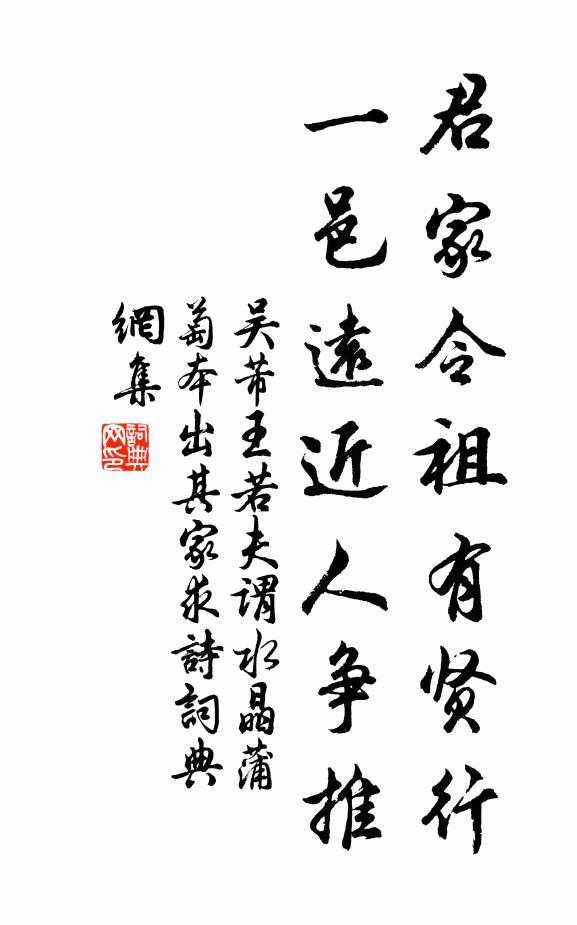 君家令祖有贤行
一邑遠近人争推
吴芾王若夫谓水晶蒲
萄本出其家求詩詞典
網集
詞典
网印